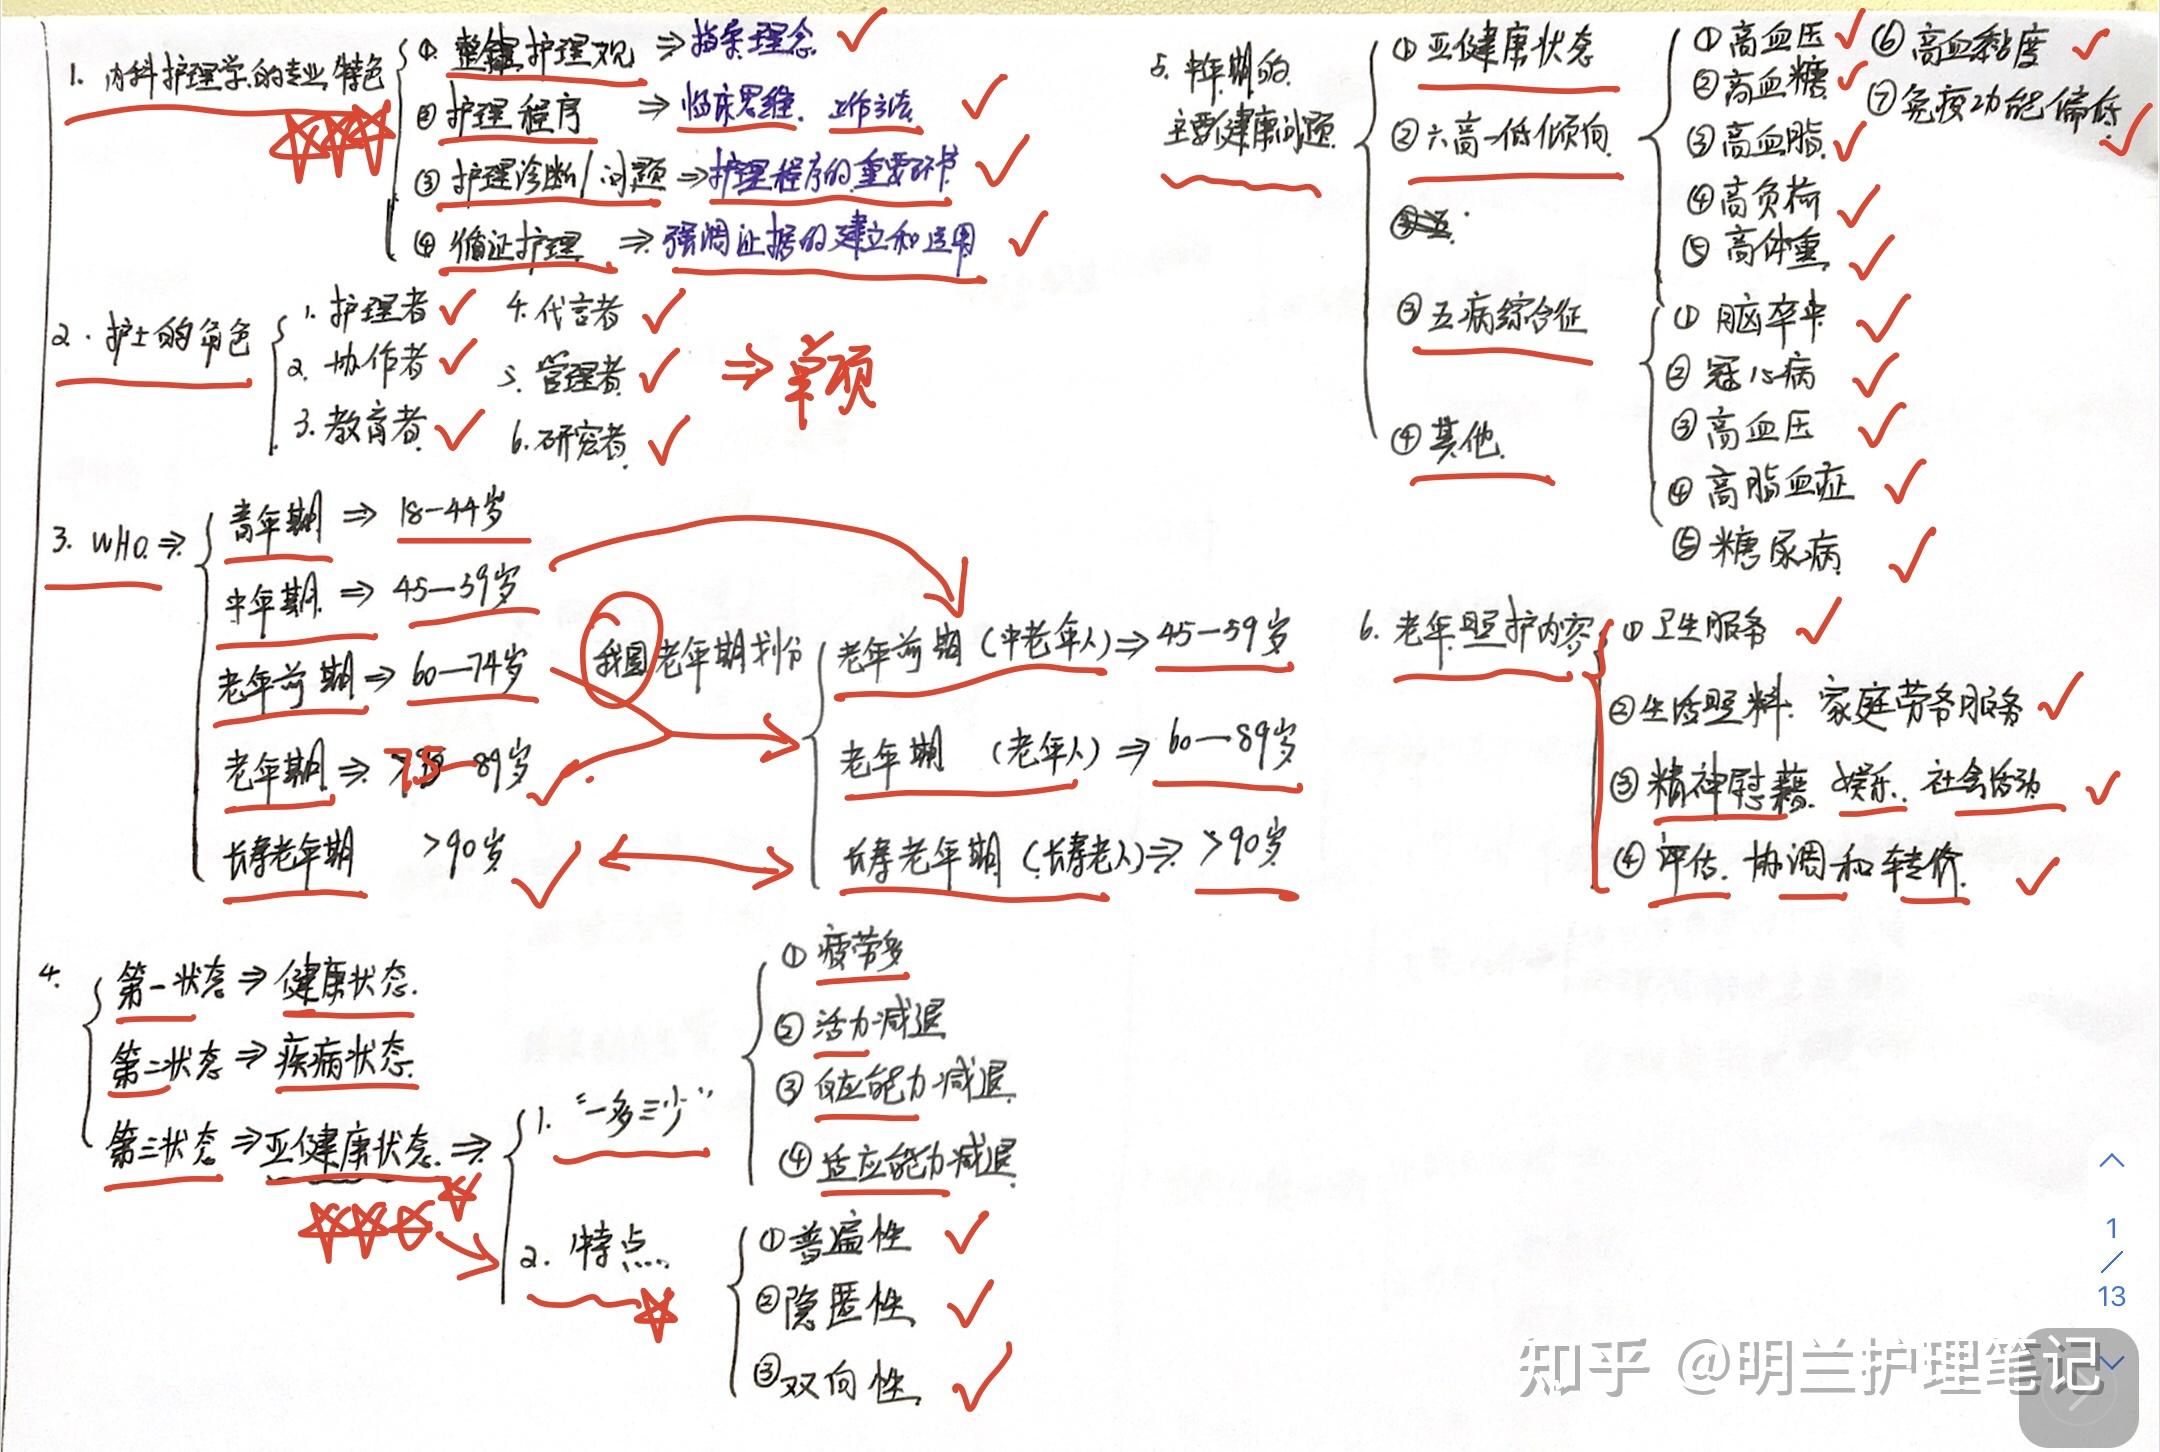 1. 内科护理学的专业特色
① 整体护理观 ⇒ 指导理念
② 护理程序 ⇒ 临床思维. 工作方法
③ 护理诊断/问题 ⇒ 护理程序的重要环节
④ 循证护理 ⇒ 强调证据的建立和运用
2. 护士的角色
1. 护理者 4. 代言者
2. 协作者 5. 管理者
3. 教育者 6. 研究者
⇒
3. WHO ⇒
青年期 ⇒ 18-44岁
中年期 ⇒ 45-59岁
老年前期 ⇒ 60-74岁
老年期 ⇒ 75-89岁
长寿老年期 >90岁
我国老年期划分
老年前期 (中老年人) ⇒ 45-59岁
老年期 (老年人) ⇒ 60-89岁
长寿老年期 (长寿老人) ⇒ >90岁
4.
第一状态 ⇒ 健康状态.
第二状态 ⇒ 疾病状态.
第三状态 ⇒ 亚健康状态 ⇒
1. "一多三少"
① 疲劳多
② 活力减退
③ 反应能力减退
④ 适应能力减退
2. 特点....
① 普遍性
② 隐匿性
③ 双向性
5. 中年期的
主要健康问题
① 亚健康状态
② 六高一低倾向
① 高血压 ⑥ 高血黏度
② 高血糖 ⑦ 免疫功能偏低
③ 高血脂
④ 高负荷
⑤ 高体重
③ 五病综合征
① 脑卒中
② 冠心病
③ 高血压
④ 高脂血症
⑤ 糖尿病
④ 其他
6. 老年照护内容
① 卫生服务
② 生活照料: 家庭劳务服务
③ 精神慰藉. 娱乐. 社会活动
④ 评估. 协调和转介.
1
/
13
知乎 @明兰护理笔记